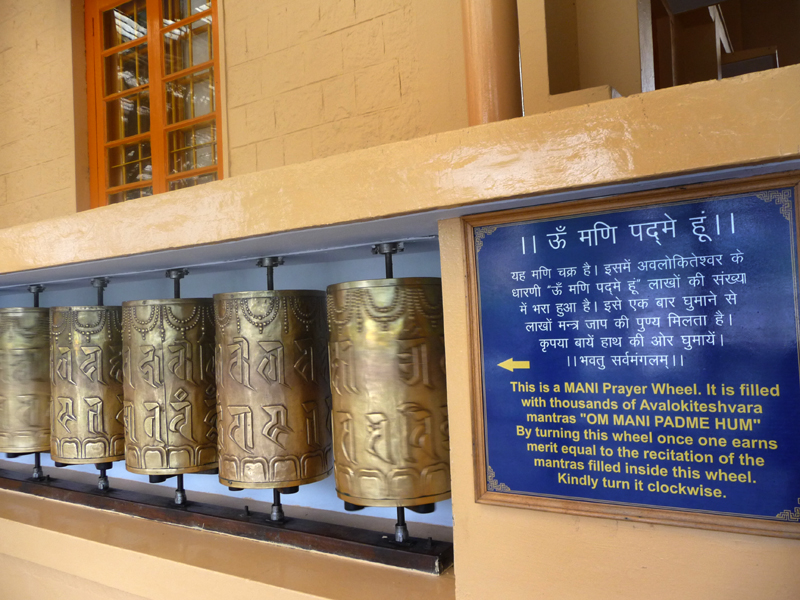 ।। ऊँ मणि पद्मे हूं ।।
यह मणि चक्र है। इसमें अवलोकितेश्वर के
धारणी "ऊँ मणि पद्मे हूं" लाखों की संख्या
में भरा हुआ है। इसे एक बार घुमाने से
लाखों मन्त्र जाप की पुण्य मिलता है।
कृपया बायें हाथ की ओर घुमायें।
।।भवतु सर्वमंगलम्।।
This is a MANI Prayer Wheel. It is filled
with thousands of Avalokiteshvara
mantras "OM MANI PADME HUM"
By turning this wheel once one earns
merit equal to the recitation of the
mantras filled inside this wheel.
Kindly turn it clockwise.